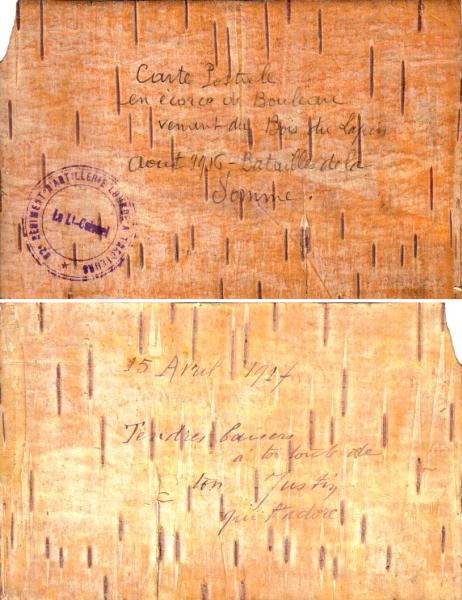 Carte Postale
en écorce de Bouleau
venant du Bois du Lapin
Aout 1916 - Batailles de la
Somme.
REGIMENT D'ARTILLERIE LOURDE A TRACTEURS
Le Lt-Colonel
15 Avril 1917
Tendres baisers
à toute de
ton Justin
qui t'adore